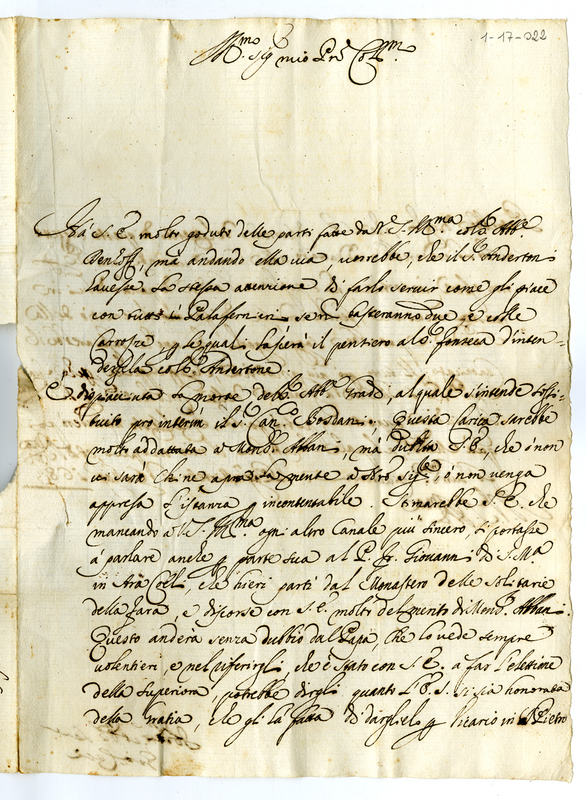 1-17-022
Ill.mo sig.r mio P.rõ Col.mo
Hà S. E. molto goduto delle parti fatte da V. S. Ill.ma col S.r Abb.e
ma andando ella via, vorrebbe, che il S.r Anderton
havesse la stessa attenzione di farlo servir come gli piace
con tutti i Palafernieri, se non basteranno due, e colle
Carrozze, p le quali lascierà il pensiero al S.r Fonseca d'inten-
dersela col S.r Andertone.
È dispiaciuta la morte dell' Abb.e Gradi, al quale s'intende sosti-
tuito pro interim il S.r Can.co Bordoni. Questa Carica sarebbe
molto addattata a Mons.r Albani, mà dubita S. E., che ò non
vi sarà chi ne apra la mente a Nostro Sig.re, ò non venga
appresa l'istanza p incontentabile. Stimarebbe S. E. che
mancando a V. S. Ill.ma ogni altro Canale più sincero, si portasse
à parlare anche p parte sua al P. F. Giovanni di S. M.a
in Ara Coeli, che hieri partì dal Monastero delle Solitarie
della Fara, e discorse con S. E. molto del merito di Mons.r Albani.
Questo anderà senza dubbio dal Papa, che lo vede sempre
volentieri, e nel riferirgli, che è stato con S. E. a far l'elettione
della Superiora, potrebbe dirgli quanto S. E. si sia honorata
della gratia, che gli hà fatta di darglielo p Vicario in S. Pietro